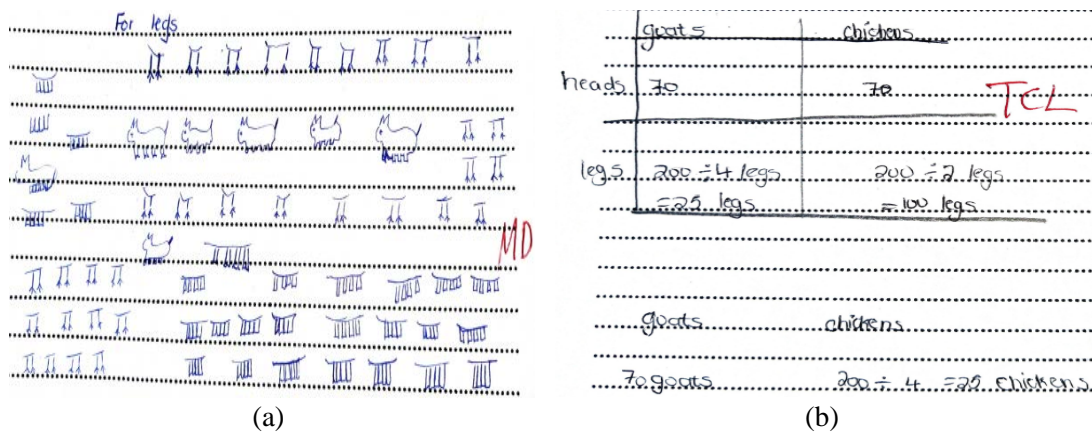 For legs
MD
(a)
goats chickens
heads 70 70 TCL
legs 200 ÷ 4 legs 200 ÷ 2 legs
= 25 legs = 100 legs
goats chickens
70 goats 200 ÷ 4 = 25 chickens
(b)